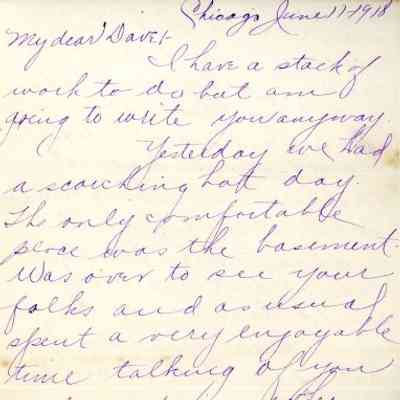 Chicago June 11-1918
My dear Dave:-
I have a stack of
work to do but am
going to write you anyway.
Yesterday we had
a scorching hott day.
The only comfortable
place was the basement.
Was over to see your
folks and as usual
spent a very enjoyable
time talking of you